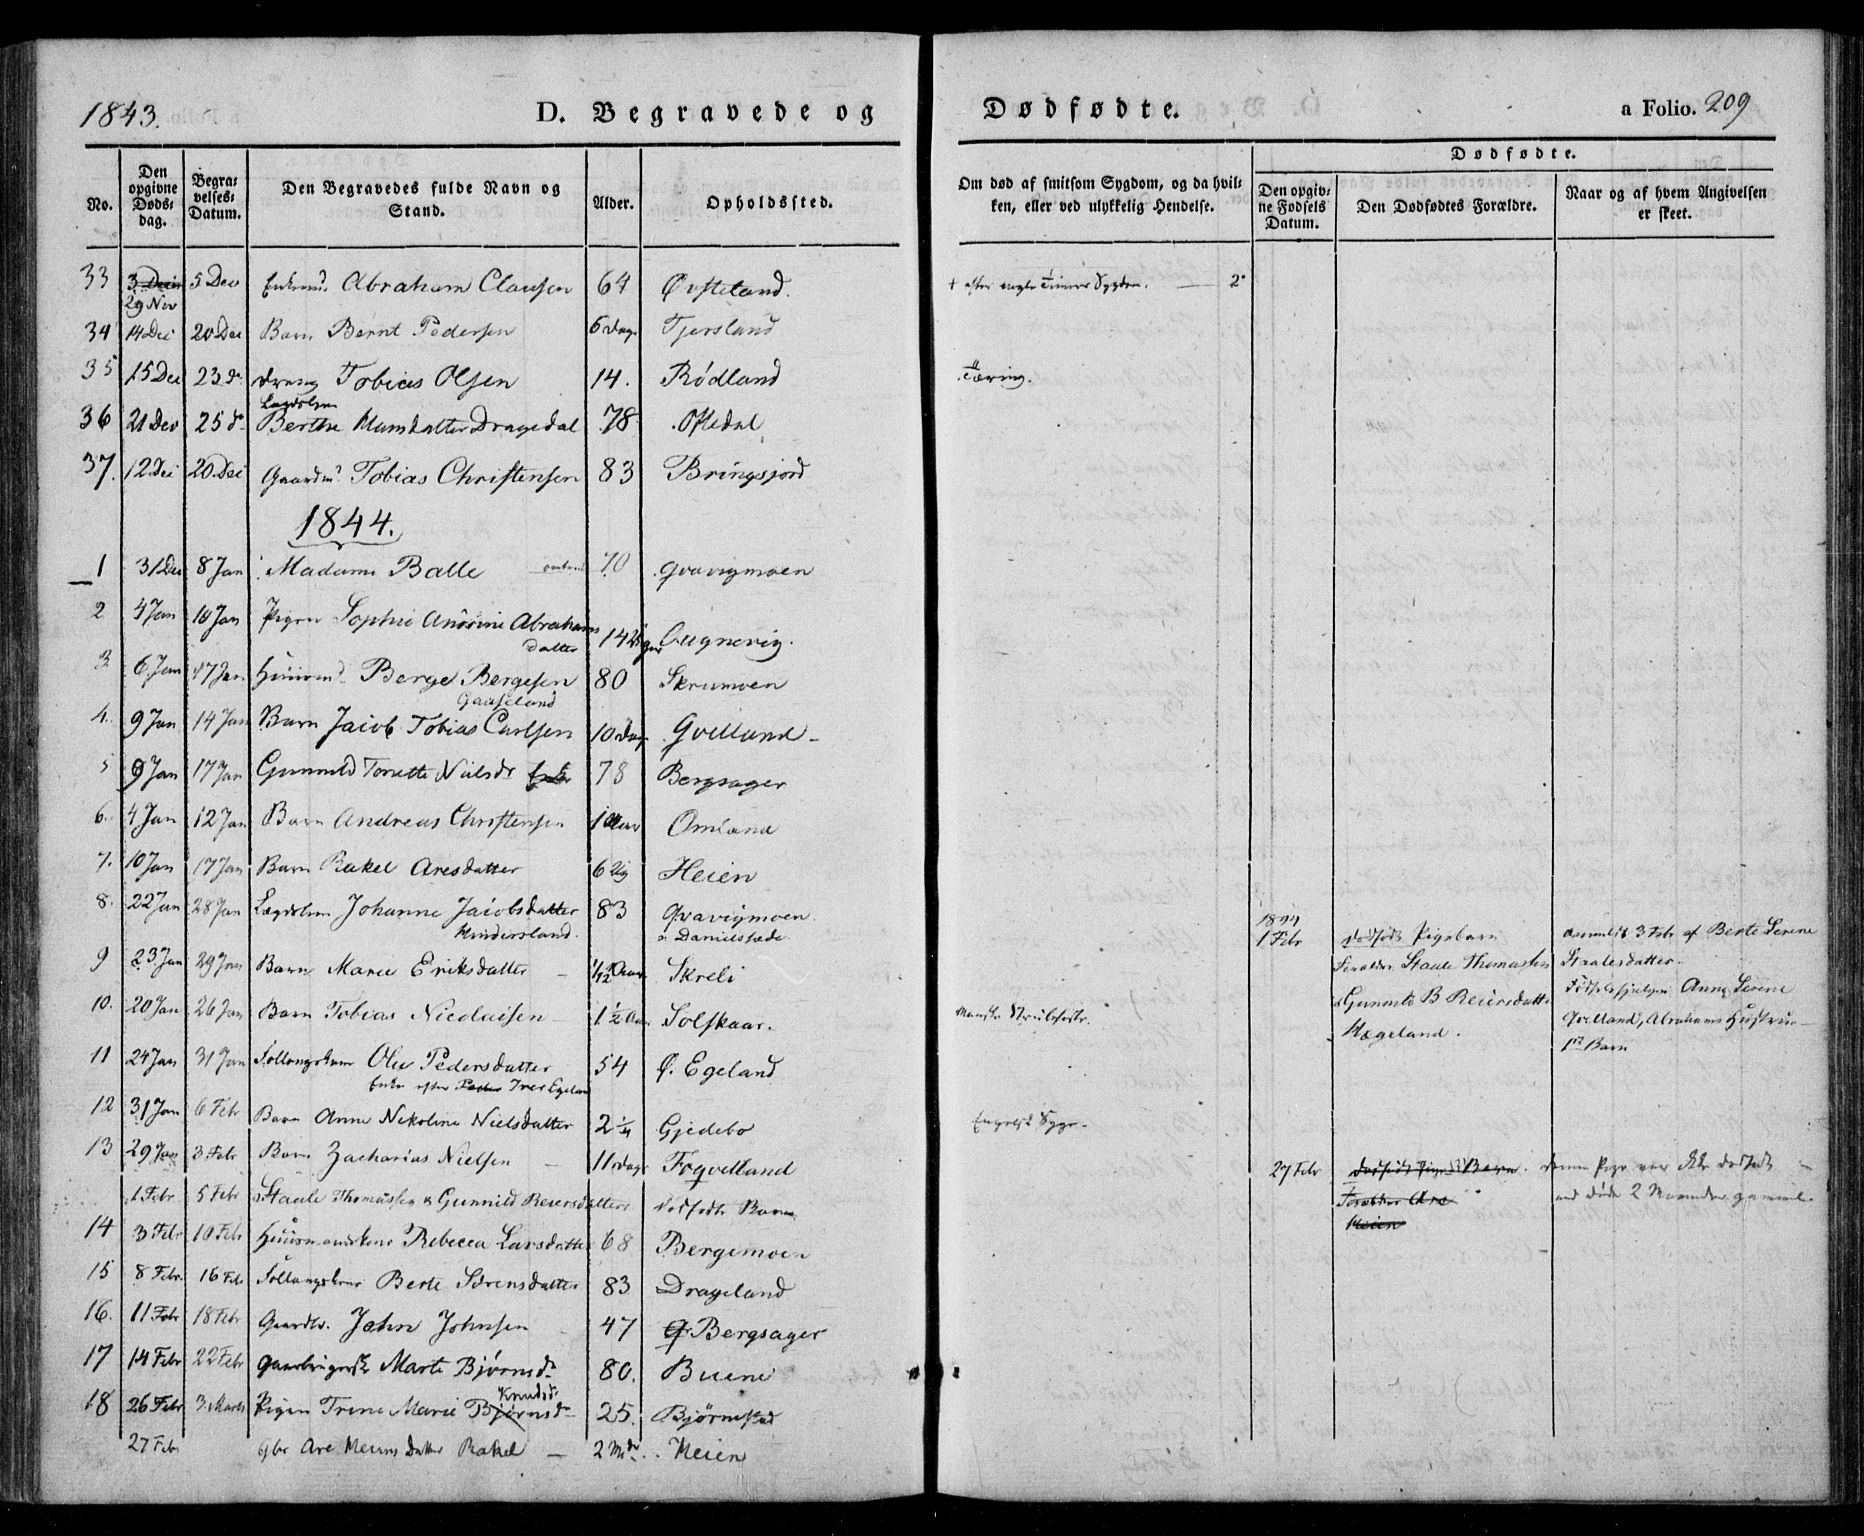 1843. D. Begravede og Dødfødte. a Folio. 209
No. Den opgivne Døds-dag. Begra-velses-Datum. Den Begravedes fulde Navn og Stand. Alder. Opholdssted. Om død af smitsom Sygdom, og da hvil-ken, eller ved ulykkelig Hendelse. Dødfødte. Den opgiv-ne Fødsels Datum. Den Dødfødtes Forældre. Naar og af hvem Angivelsen er skeet.
33 3 Dec 29 Nov 5 Dec Abraham Clausen 64 Øvfteland. + efter Sygdom. 2°
34 14 Dec 20 Dec Barn Bernt Pedersen 6 dage Tjersland
35 15 Dec 23 d° dreng Tobias Olsen 14. Rödland Tæring.
36 21 Dec 25 d° Lægdslem Berthe Dragedal 78 Oftedal
37. 12 Dec 20 Dec Gaardm. Tobias Christensen 83 Bringsjord
1844.
1 31 Dec 8 Jan Madame Balle 70 Qvavigmoen
2 4 Jan 10 Jan Pigen Sophie Andrine Abrahams datter 14 Uger Augnevig.
3 6 Jan 17 Jan Huusmd. Berge Bergesen Gaaseland 80 Skrumoen
4. 9 Jan 14 Jan Barn Jacob Tobias Carlsen 10 dage Qvelland
5 9 Jan 17 Jan Gunnild Torette Nielsdr Enke 78 Bergsager
6. 4 Jan 12 Jan Barn Andreas Christensen 1 Aar Omland
7. 10 Jan 17 Jan Barn Rakel Aresdatter 6 Ug Heien
8. 22 Jan 28 Jan Lægdslem Johanne Jacobsdatter Hindersland. 83 Qvavigmoen. Danielstæde.
9 23 Jan 29 Jan Barn Marie Eriksdatter 1/2 Aar Skreli
10. 20 Jan 26 Jan Barn Tobias Nicolaisen 1 1/2 Aar Solskaar. Strubehoste.
1844 1 Febr dødfødt Pigebarn Forældre Staale Thomassen & Gunnild B Reiersdatter Hægeland. anmeldt 3 Febr af Berte Serene Staalesdatter. Fødselshjelpen Anne Serene Qvelland, Abrahams Hustrue 1ste Barn
11 24 Jan 31 Jan Follaugskone Olu Pedersdatter Enke efter Peder Iver Egeland 54 Ø. Egeland
12 31 Jan 6 Febr Barn Anne Nikoline Nielsdatter 2 1/4 Gjedebo Engelsk Syge.
13 29 Jan 3 Febr Barn Zacharias Nielsen 11 dage Frqvelland
1 Febr 5 Febr Staale Thomassen & Gunnild Reiersdatters dødfødte Barn
27 Febr dødfødt Pige Barn. Forældre Are Heien denne Pige var ikke dødfødt men døde 2 Maaneder gammel.
14 3 Febr 10 Febr Huusmandskone Rebecca Larsdatter 68 Bergemoen
15 8 Febr. 16 Febr Follaugskone Berte Sørensdatter 83 Drageland
16. 11 Febr 18 Febr Gaardbr. John Johnsen 47 Bergsager
17 14 Febr 22 Febr Marte Bjørnsdr 80. Buene
18 26 Febr 3 Marts Pigen Trine Marie Bjørnsdr Knudsdr 25. Bjørnestad
27 Febr Are Heiens datter Rakel 2 Mdr. Heien